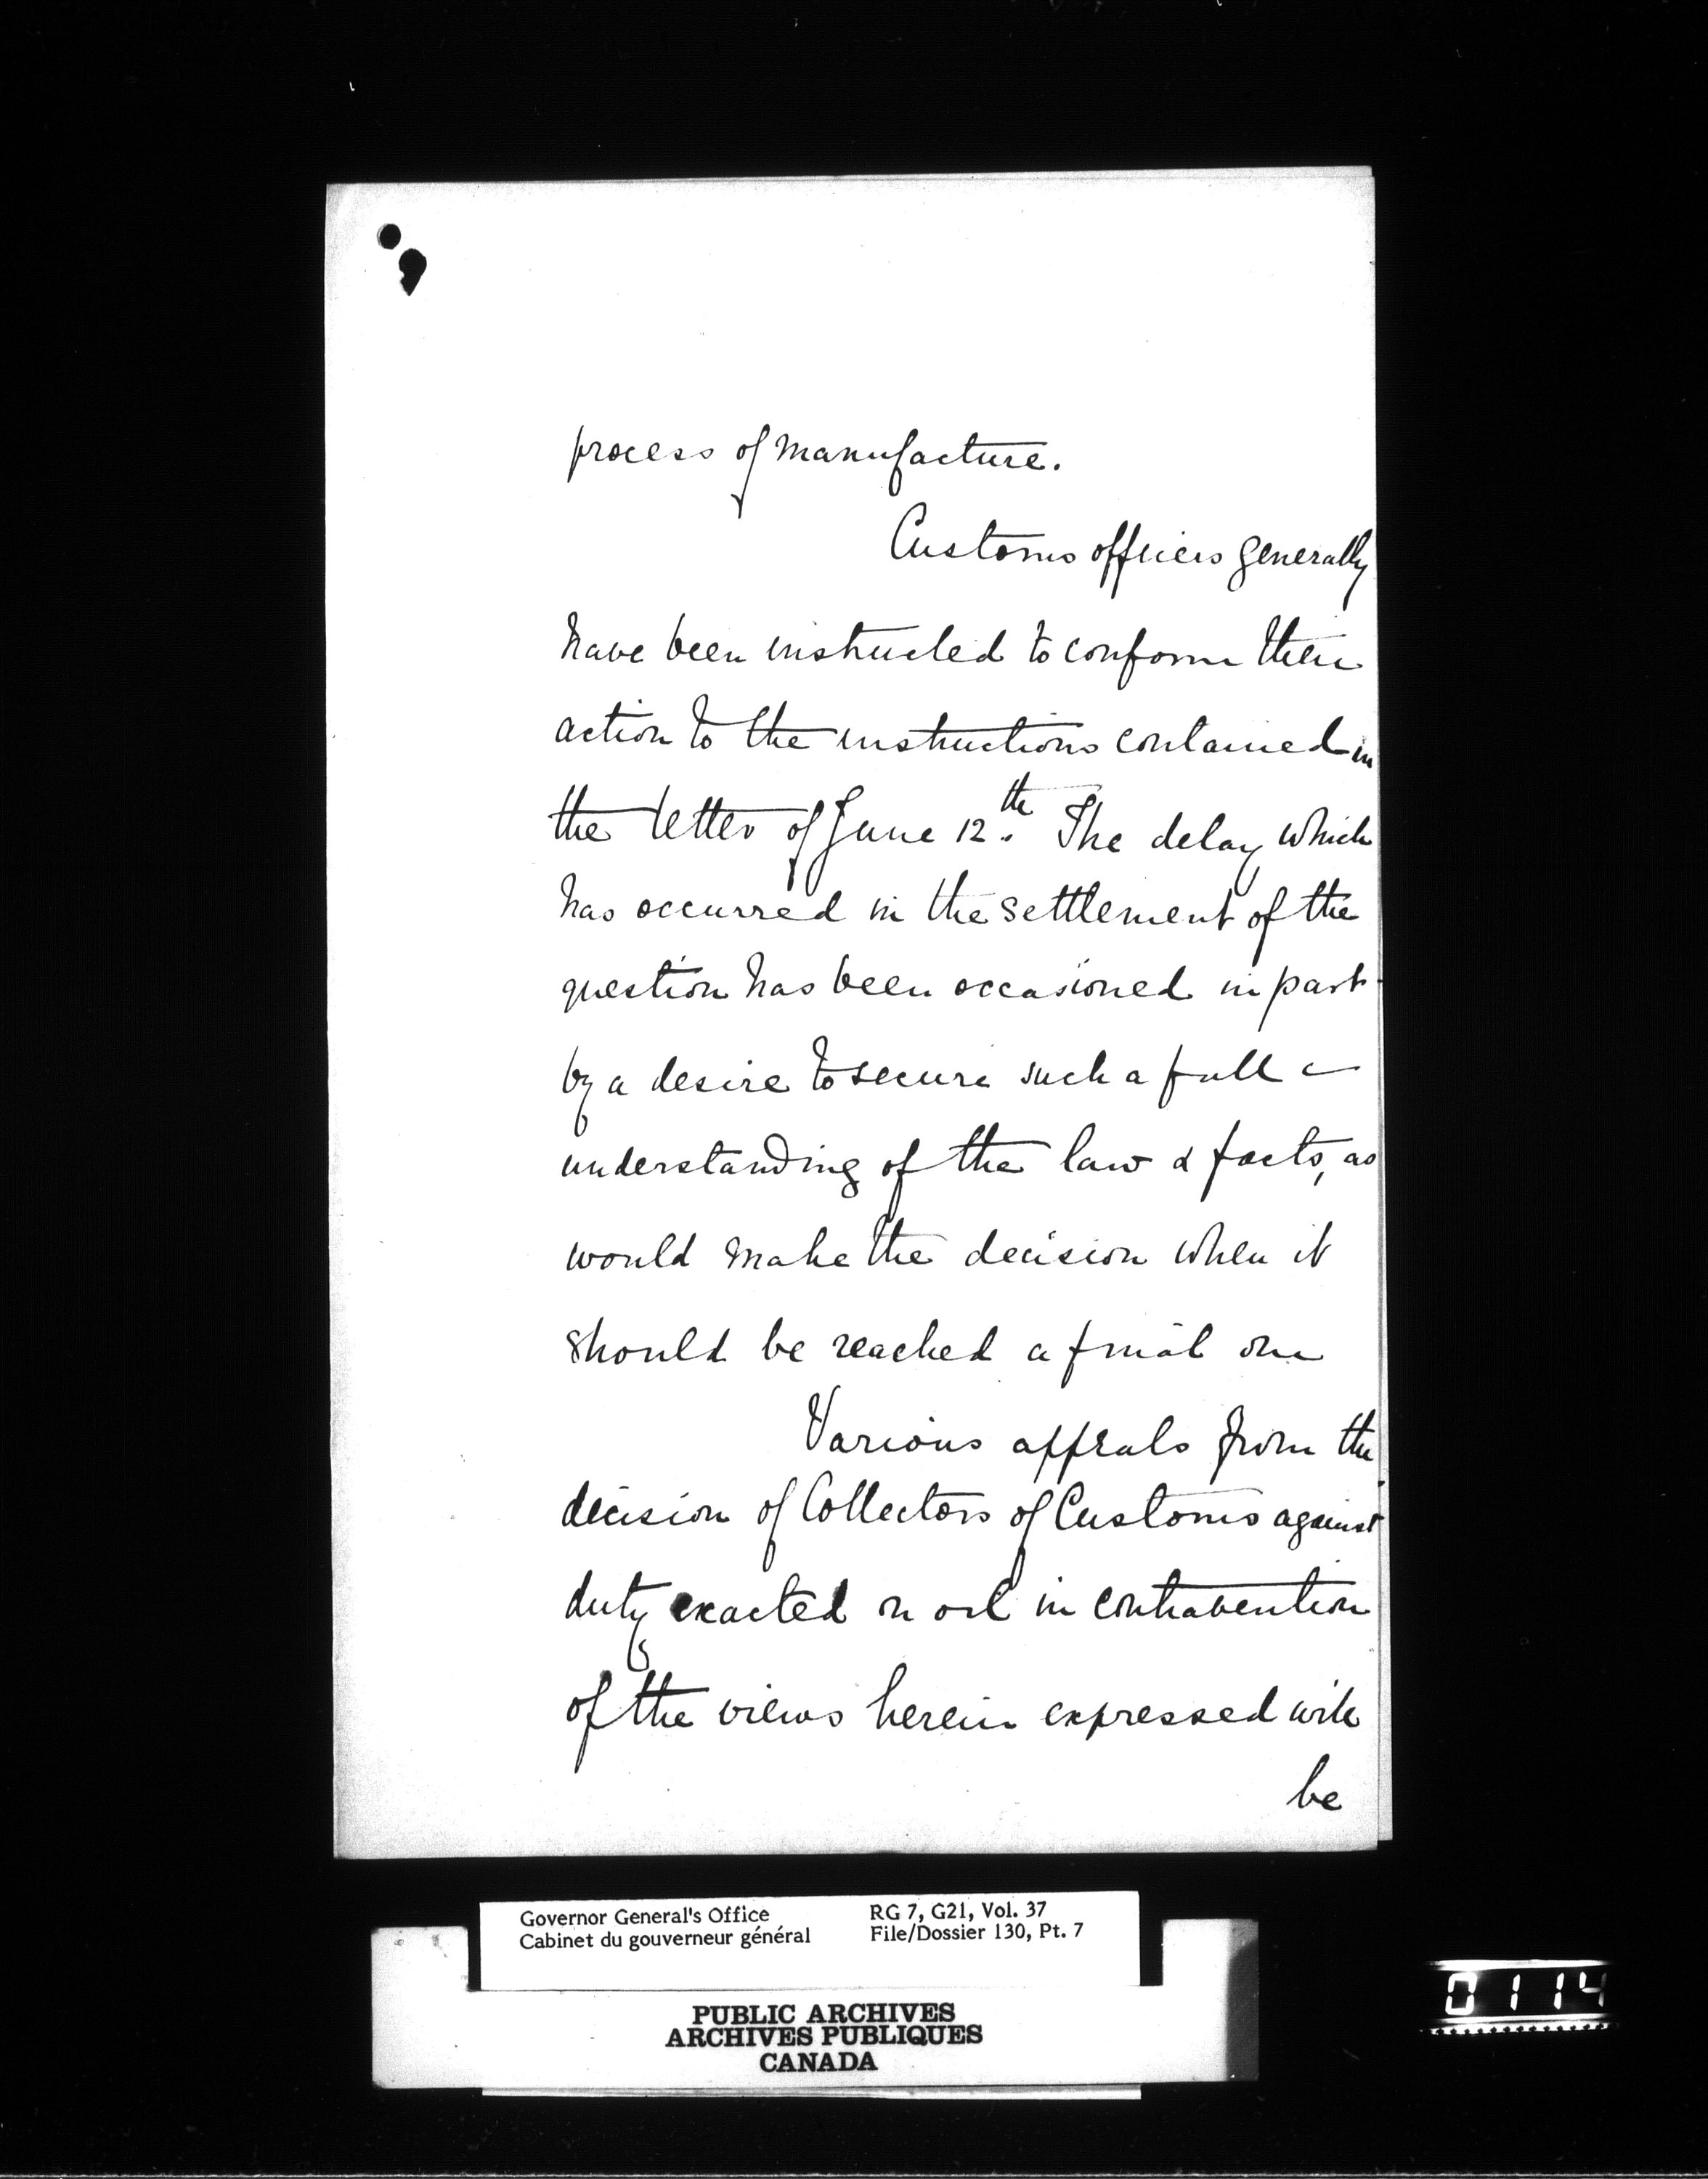 process of manufacture.
Customs officers generally
have been instructed to conform their
action to the instructions contained in
the letter of June 12th. The delay which
has occurred in the settlement of the
question has been occasioned in part
by a desire to secure such a full
understanding of the law & facts, as
would make the decision when it
should be reached a final one
Various appeals from the
decision of Collectors of Customs against
duty exacted on oil in contravention
of the views herein expressed will
be
Governor General's Office
Cabinet du gouverneur général
RG 7, G21, Vol. 37
File/Dossier 130, Pt. 7
PUBLIC ARCHIVES
ARCHIVES PUBLIQUES
CANADA
0114